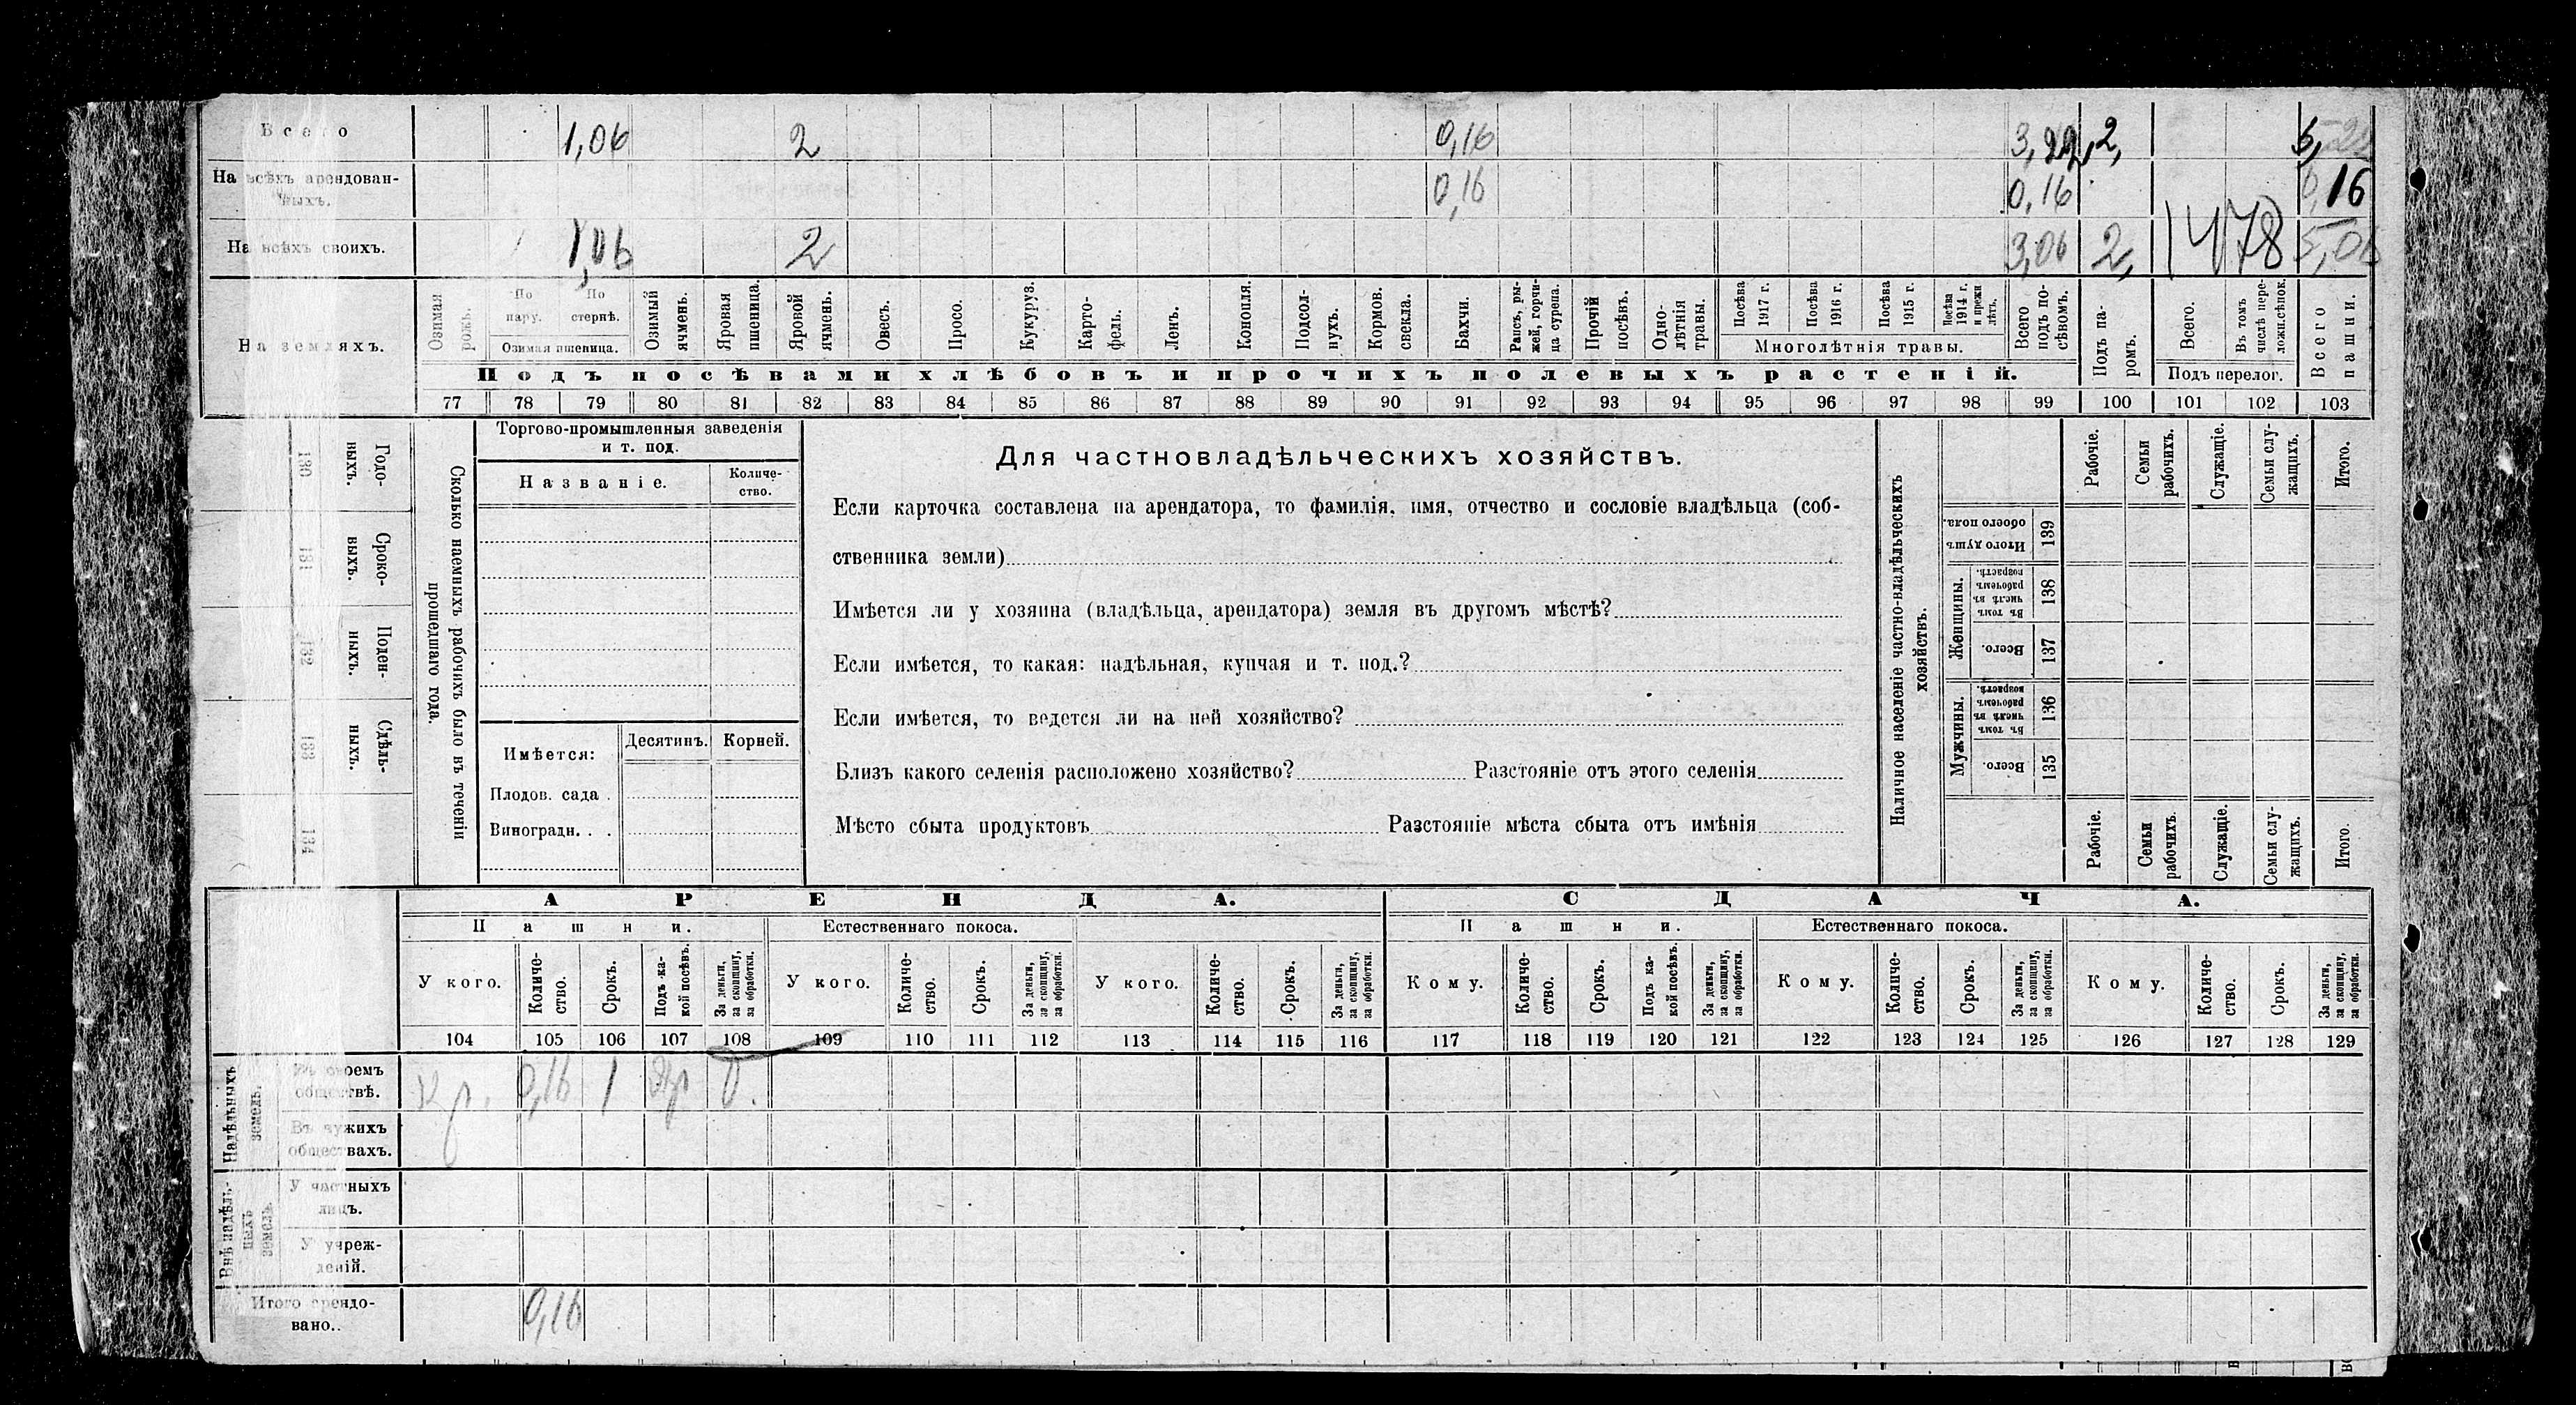 Всего 1,06 2 0,16 3,22 2,
На всѣхъ арендованныхъ. 0,16 0,16 0,16
На всѣхъ своихъ. 1,06 2 3,06 2, 1478 5,06
На земляхъ.
Озимая рожь.
По пару.
По стернѣ.
Озимая пшеница.
Озимый ячмень.
Яровая пшеница.
Яровой ячмень.
Овесъ.
Просо.
Кукуруз.
Картофель.
Ленъ.
Конопля.
Подсолнухъ.
Кормов. свекла.
Бахчи.
Рапсъ, рыжей, горчица сурепа.
Прочій посѣвъ.
Однолѣтнія травы.
Посѣва 1917 г.
Посѣва 1916 г.
Посѣва 1915 г.
Посѣва 1914 г. и прежн лѣтъ.
Многолѣтнія травы.
Всего подъ посѣвомъ.
Подъ паромъ.
Всего.
Въ томъ числѣ переложн.сѣнок.
Подъ перелог.
Всего пашни.
Подъ посѣвами хлѣбовъ и прочихъ полевыхъ растеній.
77 78 79 80 81 82 83 84 85 86 87 88 89 90 91 92 93 94 95 96 97 98 99 100 101 102 103
Годовыхъ.
130
Сроковыхъ.
131
Поденныхъ.
132
Сдѣльныхъ.
133
134
Сколько наемныхъ рабочихъ было въ теченіи
прошедшаго года.
Торгово-промышленныя заведенія
и т. под.
Названіе.
Количество.
Имѣется:
Десятинъ.
Корней.
Плодов. сада .
Виноградн. . .
Для частновладѣльческихъ хозяйствъ.
Если карточка составлена на арендатора, то фамилія, имя, отчество и сословіе владѣльца (соб-
ственника земли)
Имѣется ли у хозяина (владѣльца, арендатора) земля въ другомъ мѣстѣ?
Если имѣется, то какая: надѣльная, купчая и т. под.?
Если имѣется, то ведется ли на ней хозяйство?
Близъ какого селенія расположено хозяйство? Разстояніе отъ этого селенія
Мѣсто сбыта продуктовъ Разстояніе мѣста сбыта отъ имѣнія
Наличное населеніе частно-владѣльческихъ
хозяйствъ.
Рабочіе.
Семьи рабочихъ.
Служащіе.
Семьи служащихъ.
Итого.
Итого душъ обоего пола.
139
Женщины.
Въ томъ числѣ въ рабочемъ возрастѣ.
138
Всего.
137
Мужчины.
Въ томъ числѣ въ рабочемъ возрастѣ.
136
Всего.
135
Рабочіе.
Семьи рабочихъ.
Служащіе.
Семьи служащихъ.
Итого.
АРЕНДА. СДАЧА.
Пашни. Естественнаго покоса. Пашни. Естественнаго покоса.
У кого.
Количество.
Срокъ.
Подъ какой посѣвъ.
За деньги, за скопщину, за обработки.
У кого.
Количество.
Срокъ.
За деньги, за скопщину, за обработки.
У кого.
Количество.
Срокъ.
За деньги, за скопщину, за обработки.
Кому.
Количество.
Срокъ.
Подъ какой посѣвъ.
За деньги, за скопщину, за обработки.
Кому.
Количество.
Срокъ.
За деньги, за скопщину, за обработки.
Кому.
Количество.
Срокъ.
За деньги, за скопщину, за обработки.
104 105 106 107 108 109 110 111 112 113 114 115 116 117 118 119 120 121 122 123 124 125 126 127 128 129
Надѣльныхъ земель.
Въ своемъ обществѣ. Кр. 0,16 1
Въ чужихъ обществахъ.
Внѣ надѣльныхъ земель.
У частныхъ лицъ.
У учрежденій.
Итого арендовано.. 0,16